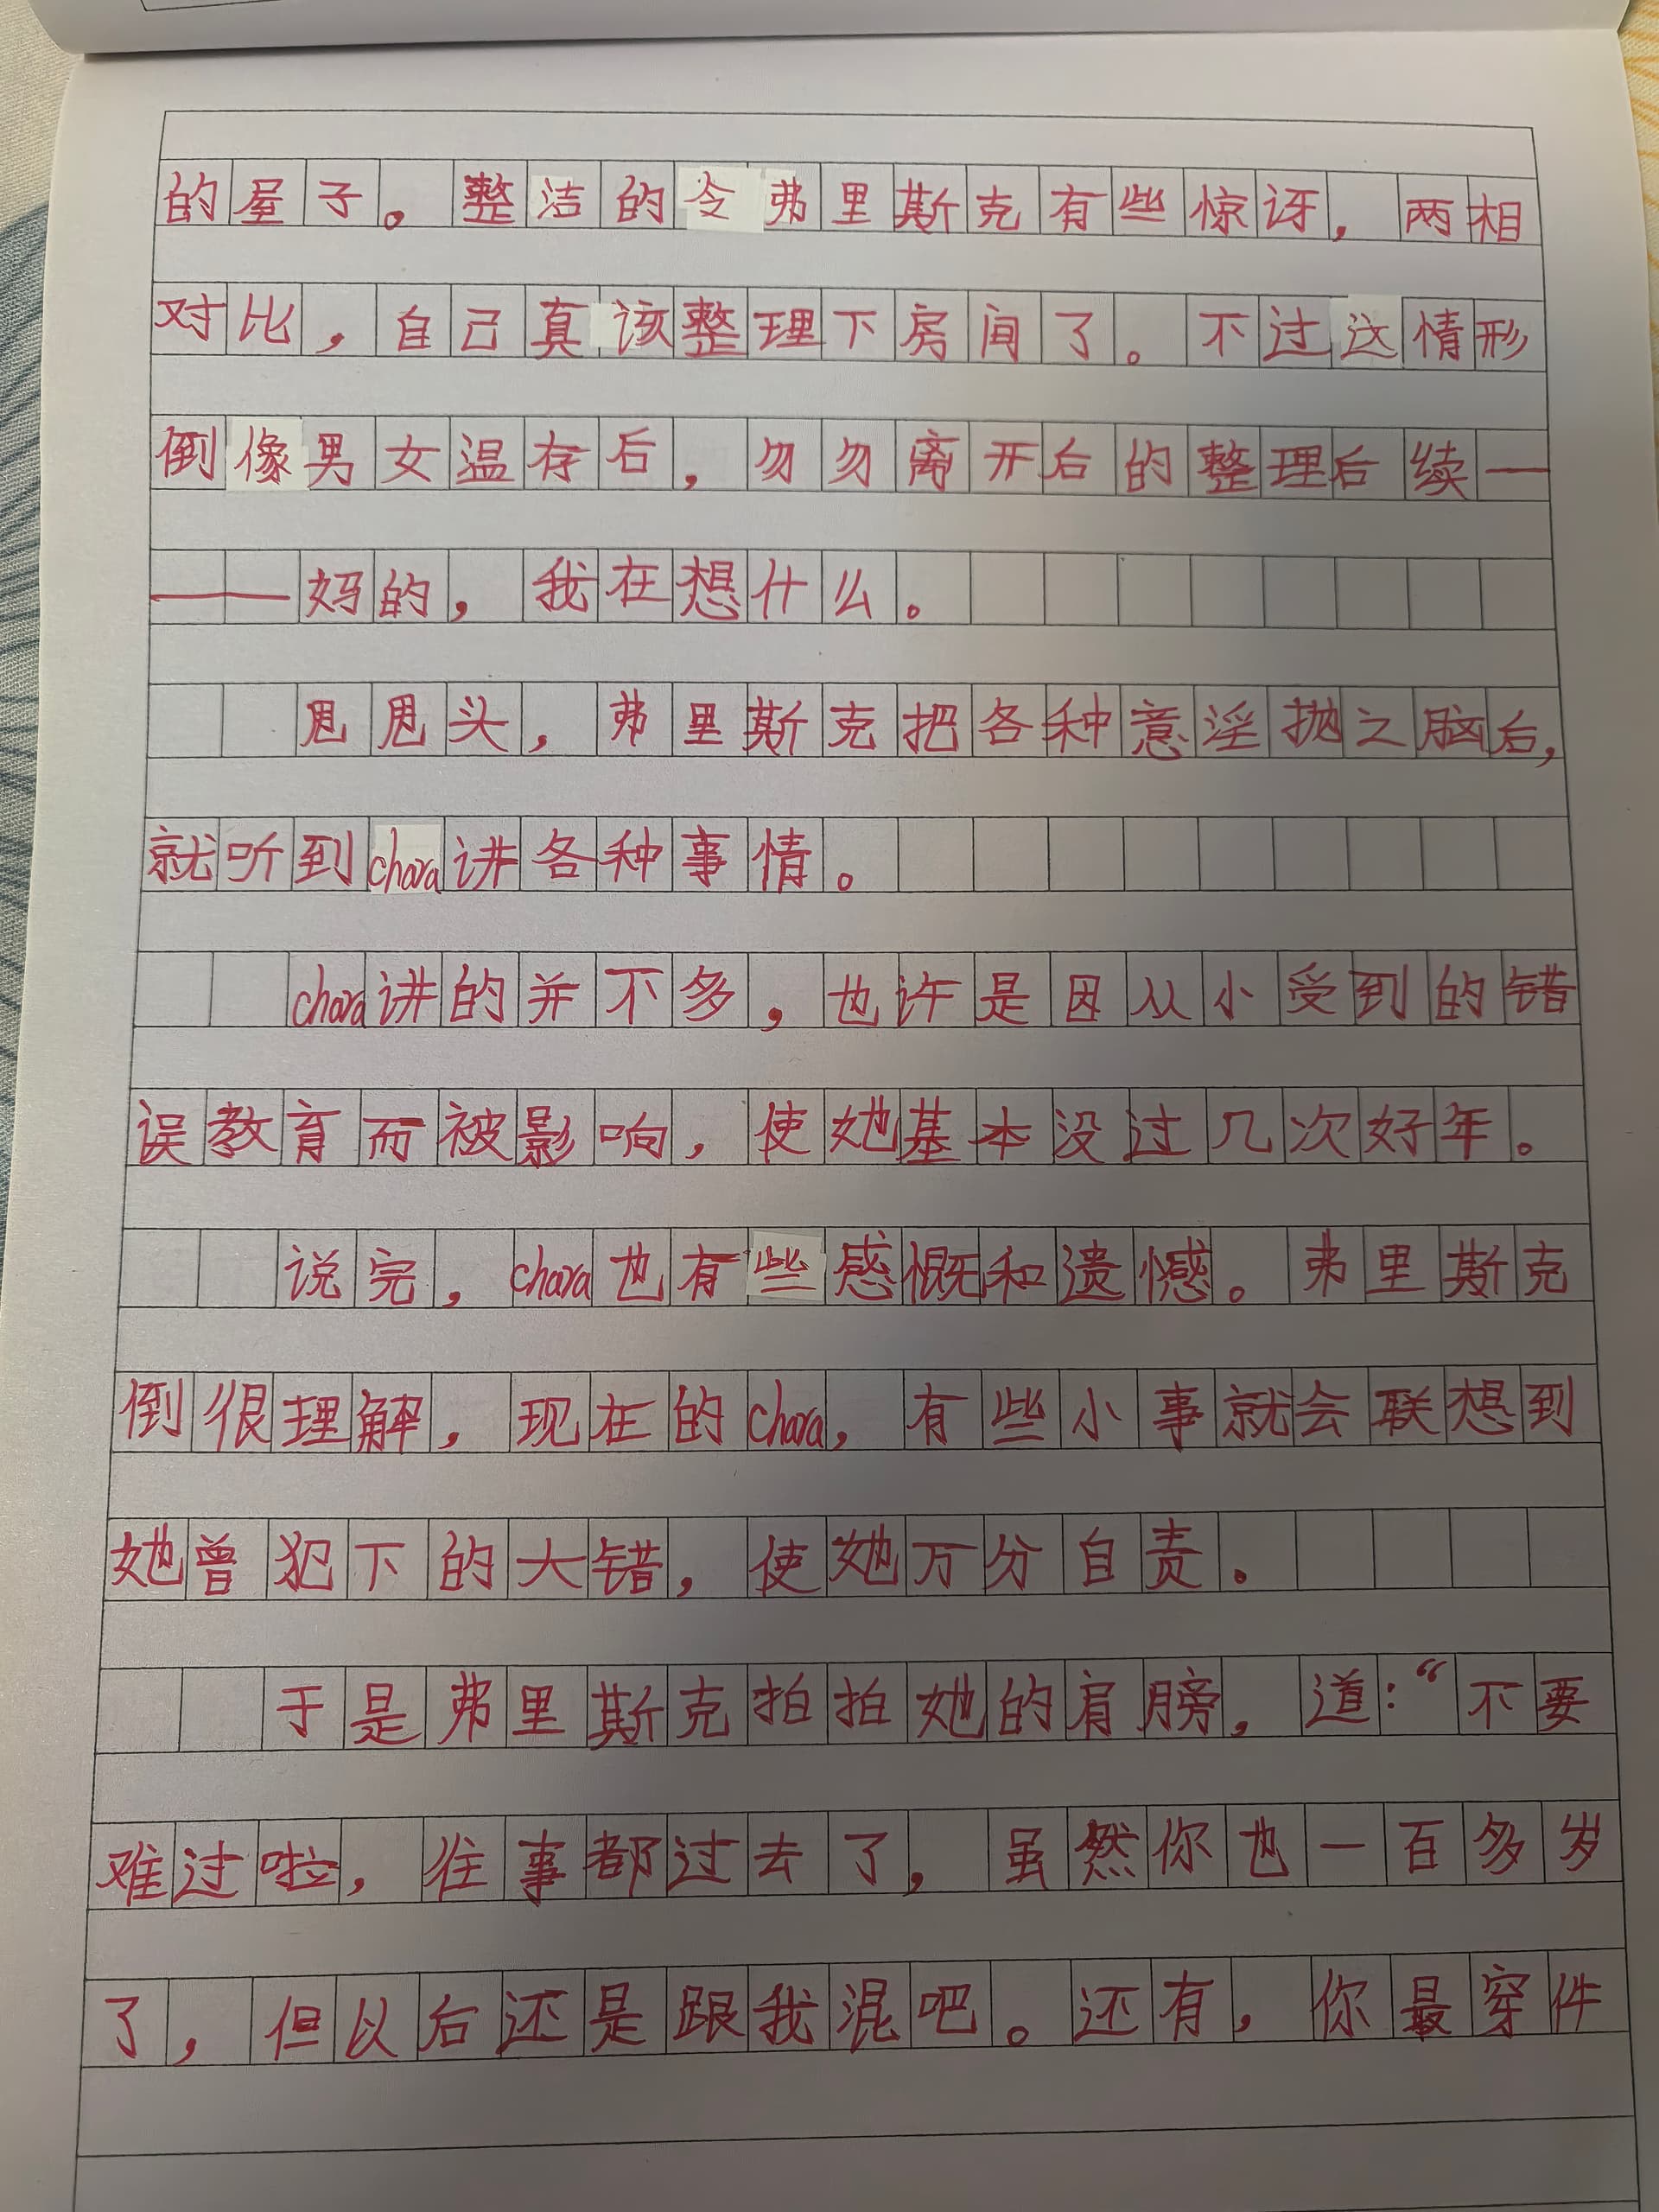 的屋子。整洁的令弗里斯克有些惊讶，两相
对比，自己真该整理下房间了。不过这情形
倒像男女温存后，勿勿离开后的整理后续—
——妈的，我在想什么。
甩甩头，弗里斯克把各种意淫抛之脑后，
就听到chara讲各种事情。
chara讲的并不多，也许是因从小受到的错
误教育而被影响，使她基本没过几次好年。
说完，chara也有些感慨和遗憾。弗里斯克
倒很理解，现在的chara，有些小事就会联想到
她曾犯下的大错，使她万分自责。
于是弗里斯克拍拍她的肩膀，道：“不要
难过啦，往事都过去了，虽然你也一百多岁
了，但以后还是跟我混吧。还有，你最穿件